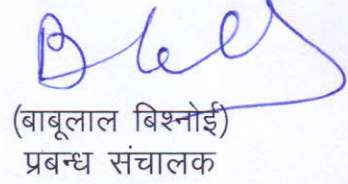 (बाबूलाल बिश्नोई)
प्रबन्ध संचालक